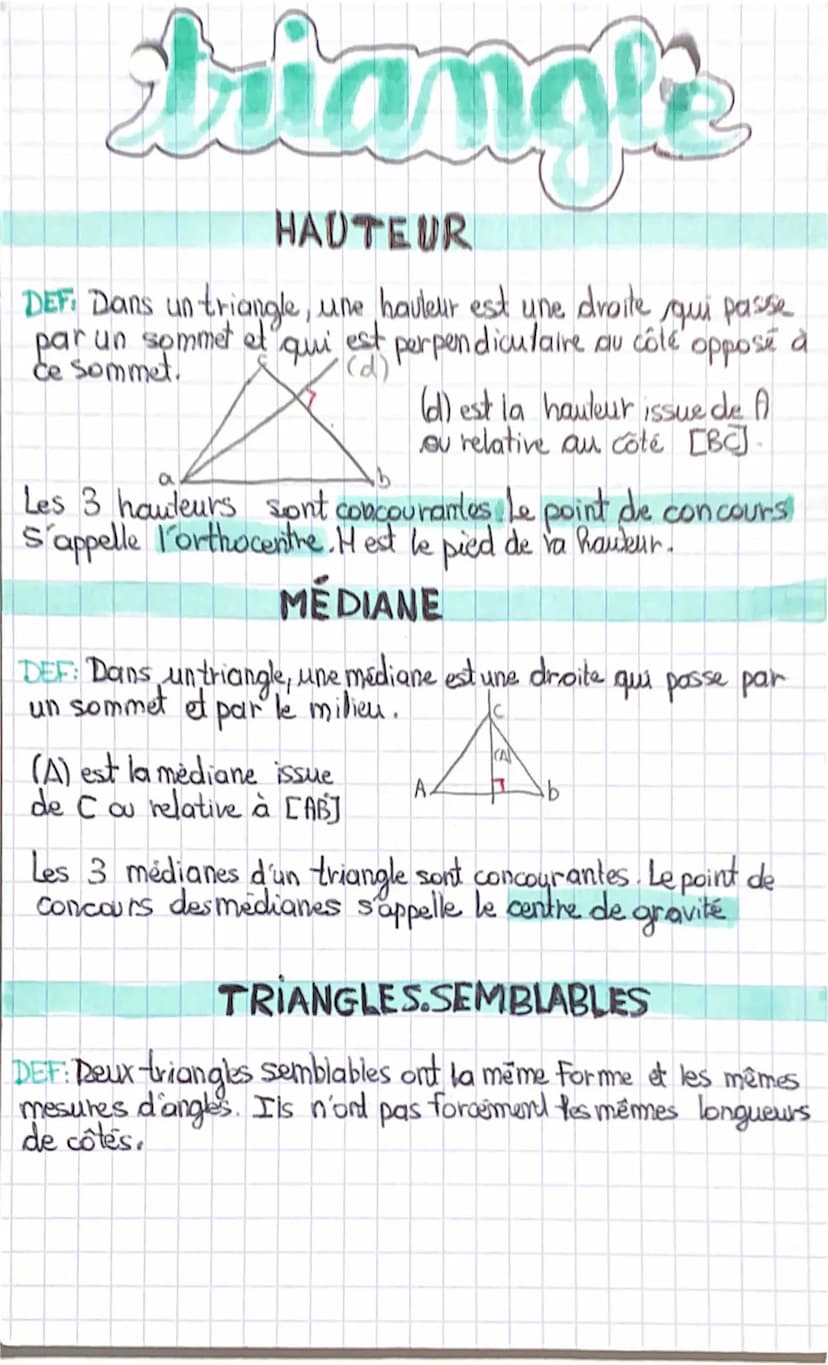 triangle
HAUTEUR
DEF: Dans un triangle, une hauteur est une droite qui passe
par un sommet et qui est perpendiculaire au côté opposé à
ce sommet.
c
(d)
(d) est la hauteur issue de A
ou relative au côté [BC].
a
b
Les 3 hauteurs sont concourantes. Le point de concours
s'appelle l'orthocentre. H est le pied de la hauteur.
MÉDIANE
DEF: Dans un triangle, une médiane est une droite qui passe par
un sommet et par le milieu.
C
(A)
(A) est la médiane issue
de C ou relative à [AB]
A
b
Les 3 médianes d'un triangle sont concourantes. Le point de
concours des médianes s'appelle le centre de gravité
TRIANGLES.SEMBLABLES
DEF: Deux triangles semblables ont la même forme et les mêmes
mesures d'angles. Ils n'ont pas forcément les mêmes longueurs
de côtés.